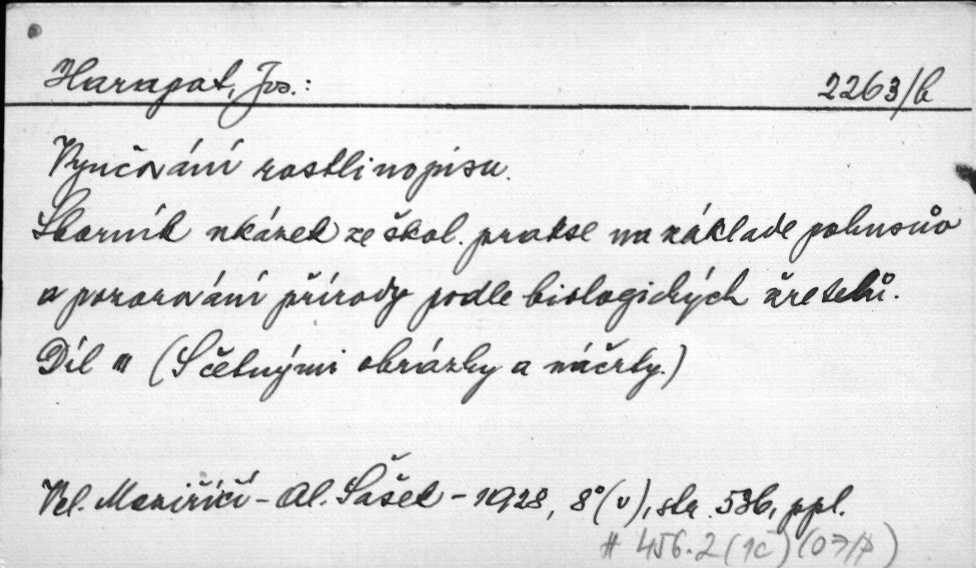 Harapat, Jos.: 2263/b
Vyučování rostlinopisu.
Sborník ukázek ze škol. prakse na základe pokusův
a pozorování přírody podle biologických zřetelů.
Díl II (S četnými obrázky a náčrty.)
Vel. Meziříčí - Al. Šašek - 1928, 8°(v), str. 536, ppl.
# 456.2 (1c) (07/P)